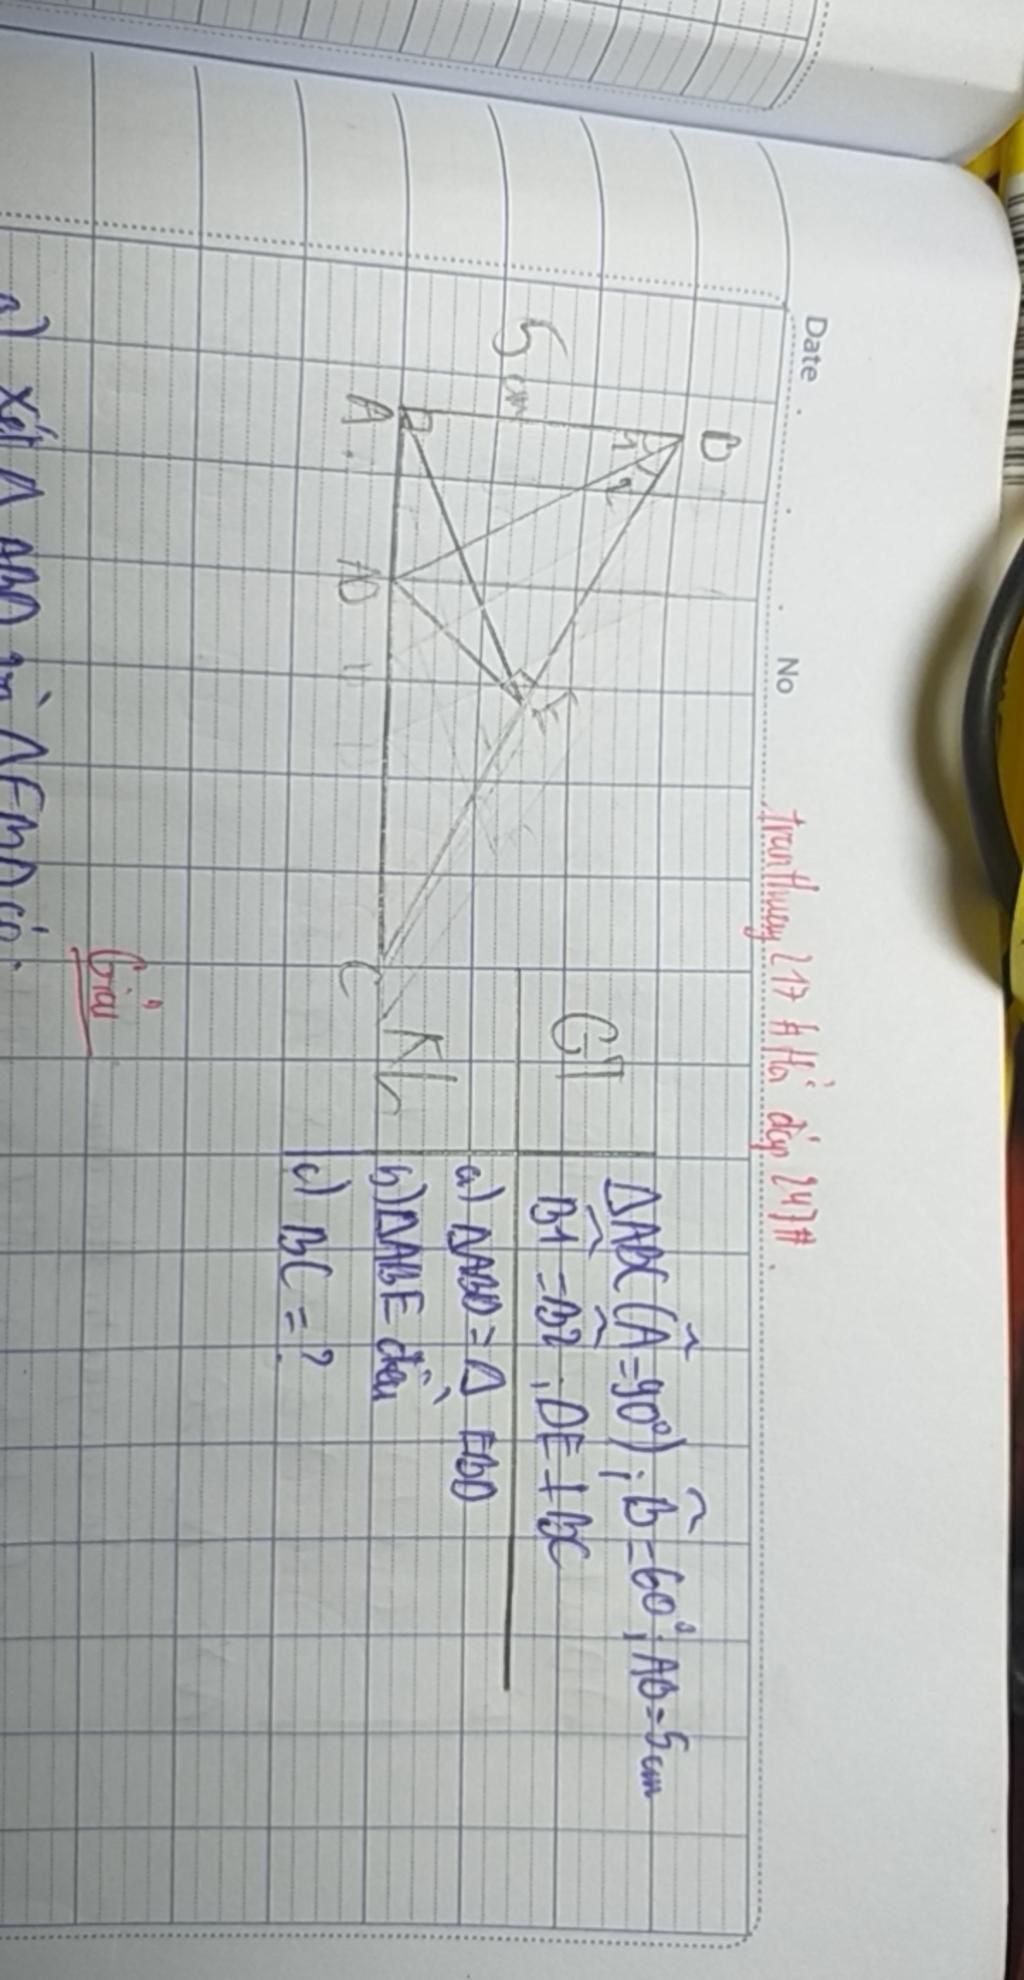 Date . . . No
tranthuay217 # Hỏi đáp 247#
B
1 2
5cm
E
A D C
GT
ΔABC (Â=90°); B̂=60°; AB=5cm
B̂1 = B̂2; DE⊥BC
KL
a) ΔABD = Δ EBD
b) ΔABE đều
c) BC = ?
Giải
a) Xét Δ ABD và ΔEBD có: